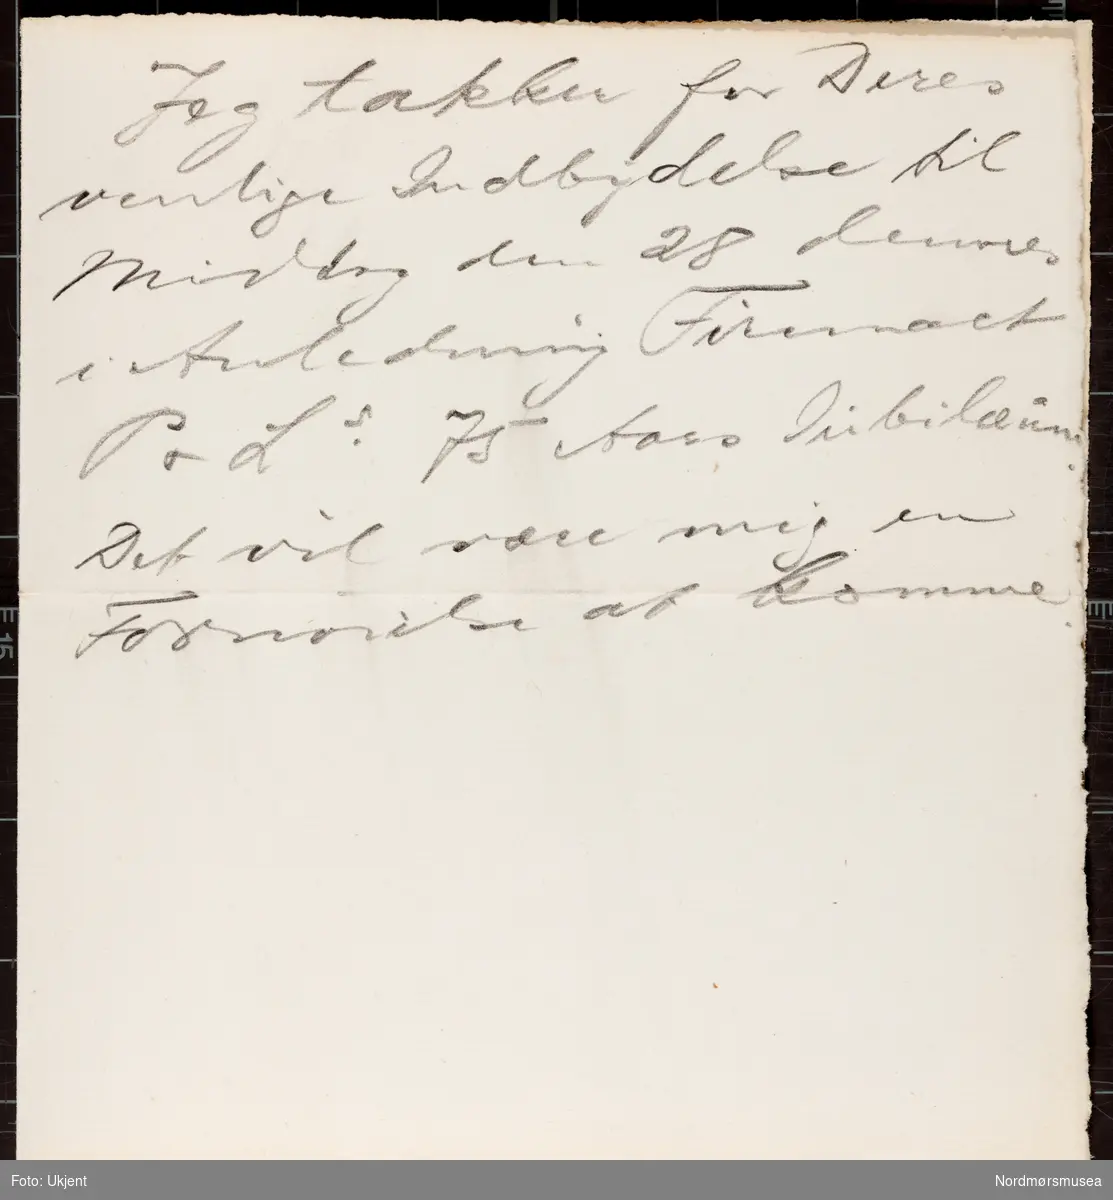 Jeg takker for Deres
venlige Indbydelse til
Middag den 28 dennes
i Anledning Firmaet
P & L's 75 Aars Jubilæum.
Det vil være mig en
Fornøielse at komme.
E 15
Foto: Ukjent
Nordmørsmusea